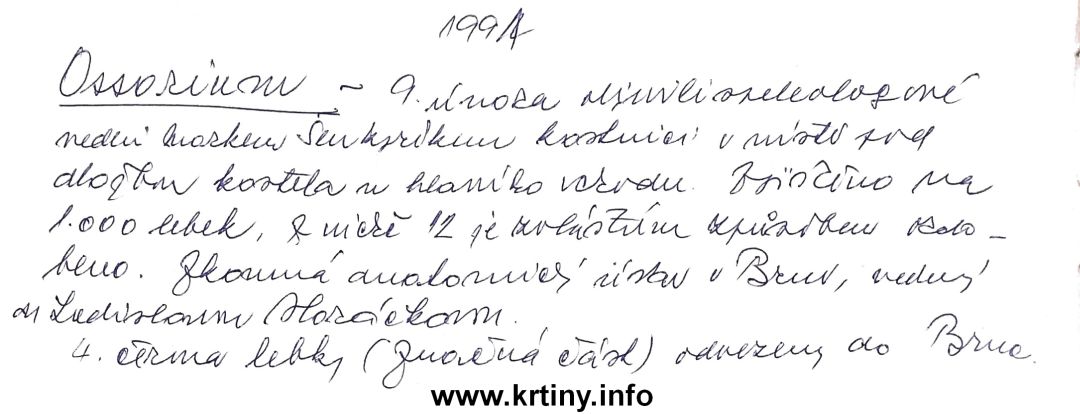 1991
Ossorium ~ 9. února objevili archeologové
vedeni Markem Šenkyříkem kostnici v místě pod
dlažbou kostela u hlavního vchodu. Zjištěno na
1.000 lebek, z nichž 12 je zvláštním způsobem zdo-
beno. Zkoumá anatomický ústav v Brně, vedený
Ladislavem Horáčkem.
4. června lebky (značná část) odvezeny do Brna.
www.krtiny.info